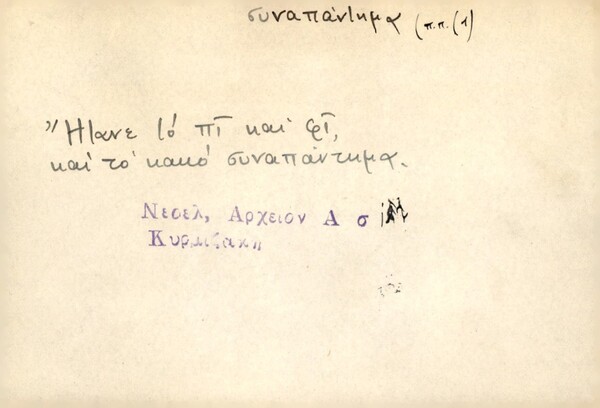 συναπάντημα (π.π. (1)
"Ητανε τό πῖ καί φῖ,
καί τό κακό συναπάντημα.
Νεσελ, Αρχειον Α σ
Κυρμιζακη